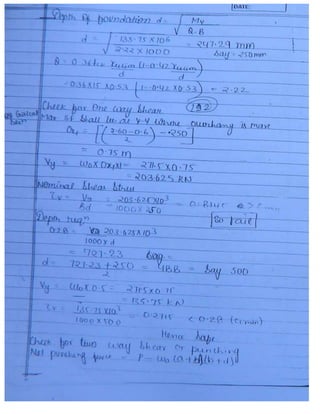 DATE
Depth of foundation d = √ My / Q.B
d = √ 135.75 × 10⁶ / 2.22 × 1000 = 247.29 mm
say = 250 mm
Q = 0.36 fck xulim (1 - 0.42 xulim)
d d
= 0.36×15 ×0.53 (1 - 0.42 × 0.53) = 2.22
192
Check for One way shear
Max SF shall be at x-x where overhang is more
= [(2.60 - 0.6 / 2) - 250]
= 0.75 m
Vy = Wo × = 271.5 × 0.75
= 203.625 KN
Nominal Shear Stress
τv = Vu / Bd = 203.625×10³ / 1000×250 = >
So fail
Depth reqⁿ
= 203.625×10³
1000 × d
= 727.23
d = 727.23 + 250 / 2 = 488 = say 500
Vy = Wo × 0.5 = 271.5 × 0.5
= 135.75 KN
τv = 135.75 ×10³ / 1000 × 500 = 0.2715 < 0.28 (τcmin)
Hence Safe
Check for two way shear or punching
Net punching force = P - Wo (a+d)(b+d)